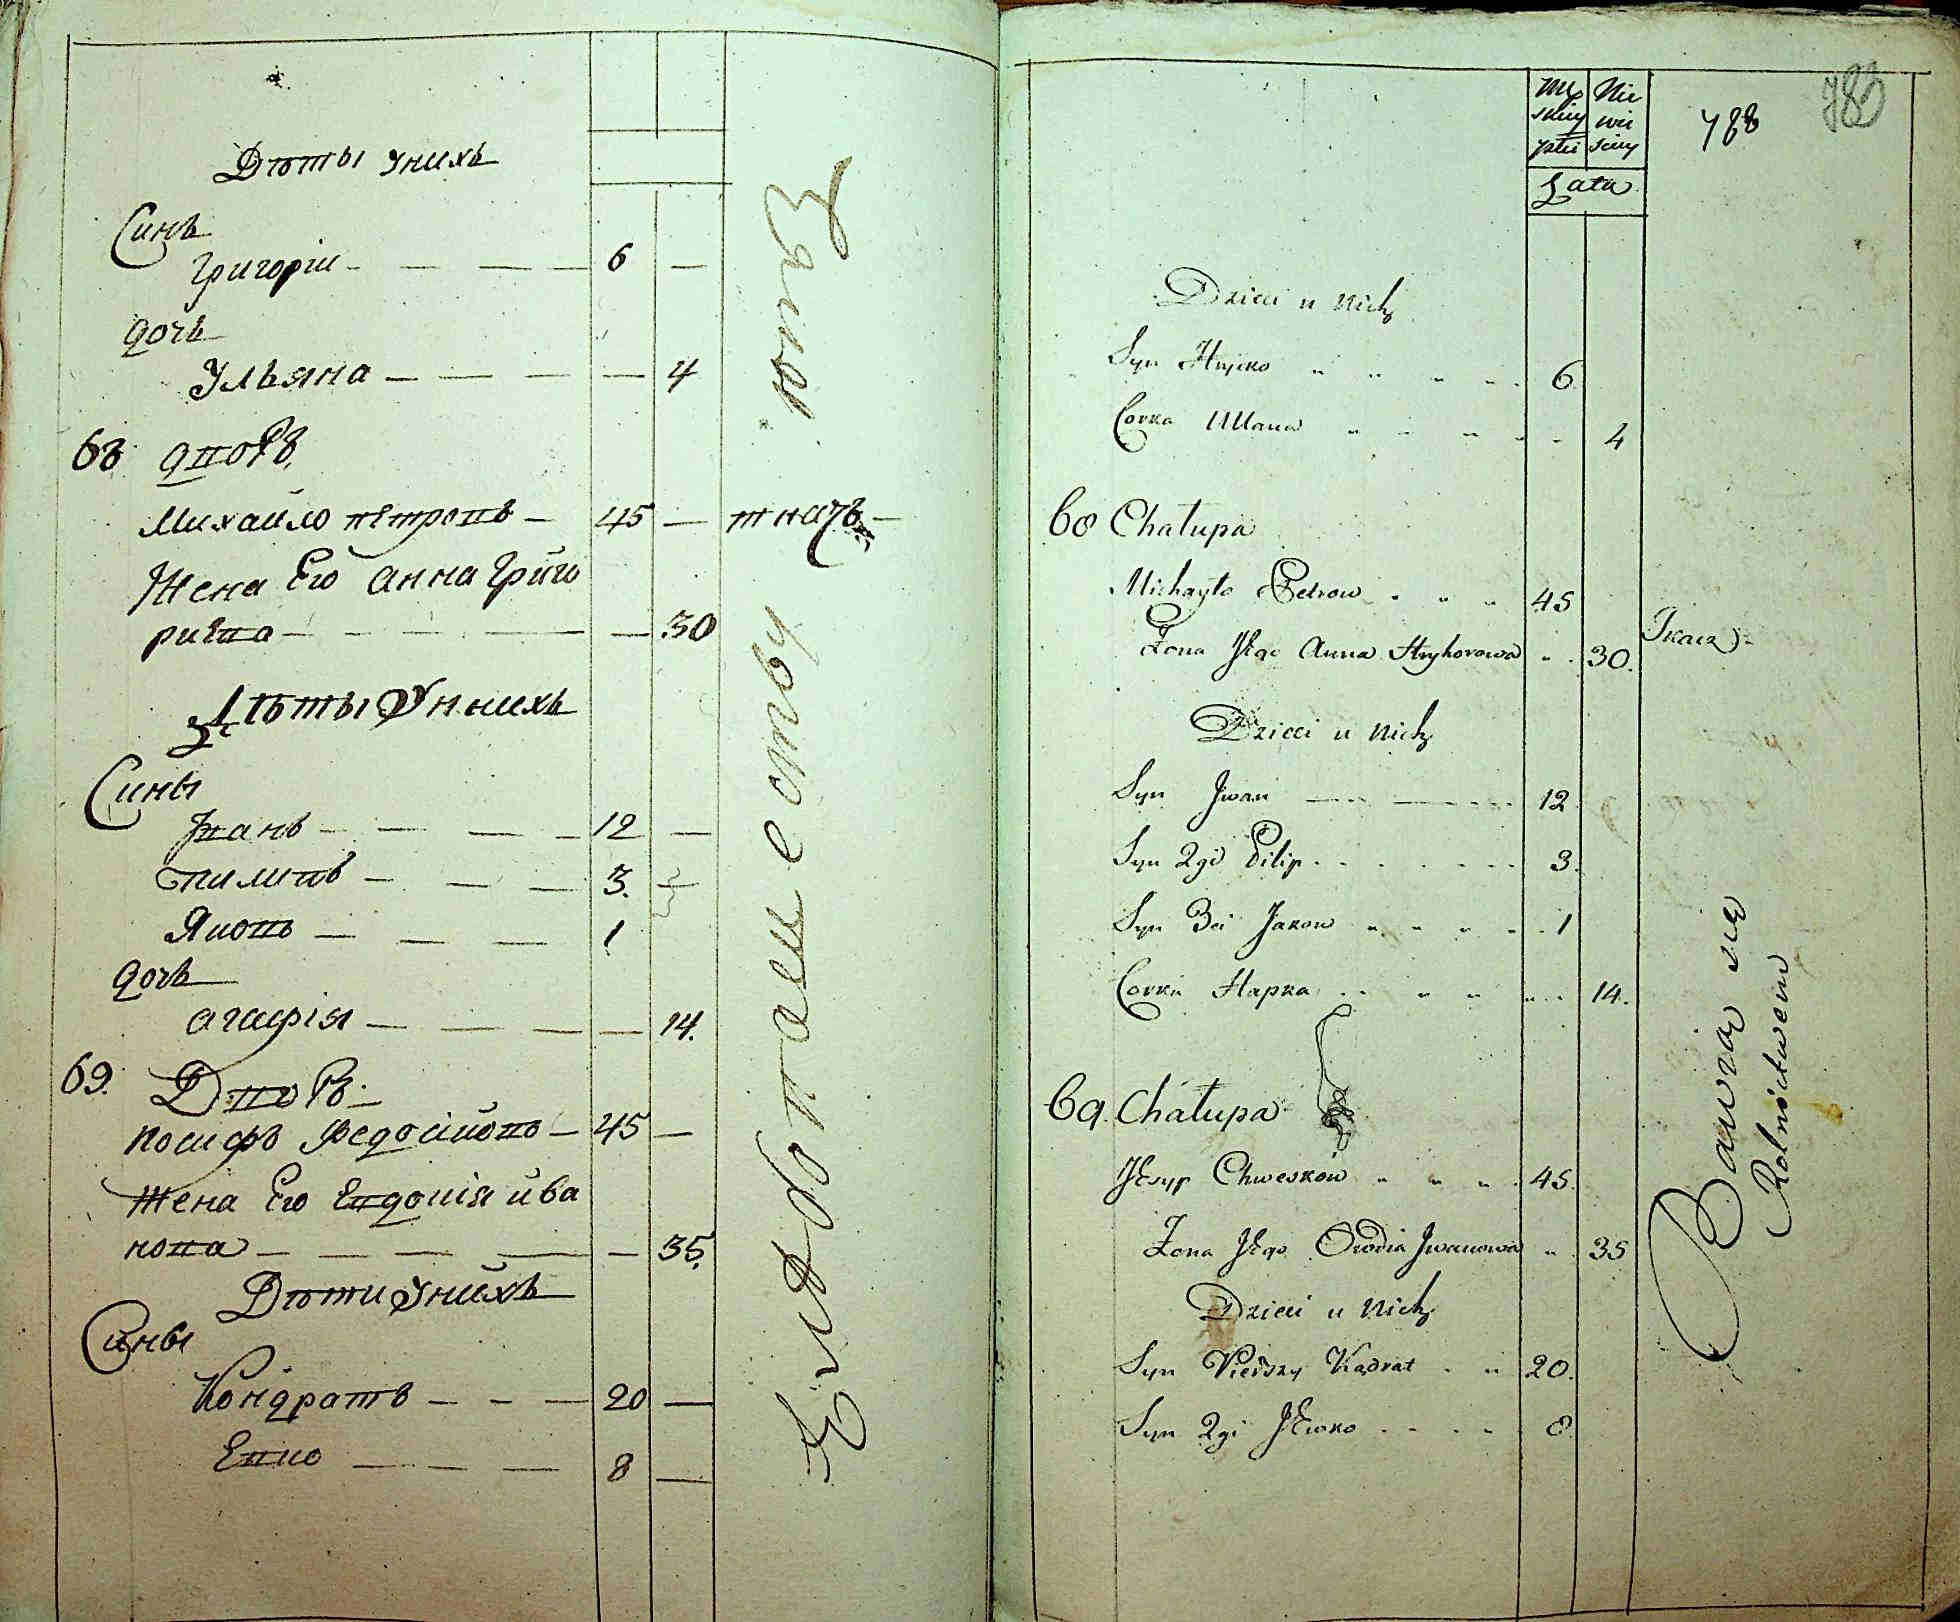 Дѣты унихъ
Синъ
Григоріи 6
дочь
Ульяна 4
68 двор
Михаило петровъ 45 ткачь
Жена Его анна Григо
риева 30
Дѣты Унихъ
Сины
Іванъ 12
пилипъ 3.
Яковъ 1
дочь
агафія 14.
69. Двор
Іосифъ Федосіиовъ 45
Жена Его Евдокія ива
нова 35.
Дѣти Унихъ
Сины
Кондратъ 20
Евко 8
788
Męskiey płci Niewieściey
Lata
Dzieci u nich
Syn Hryćko 6
Corka Uliana 4
68 Chałupa
Michayło Petrow 45
Żona Jego Anna Hryhorowa 30. Tkacz
Dzieci u nich
Syn Jwan 12
Syn 2gi Pilip 3.
Syn 3ci Jakow 1
Corka Hapka 14.
69. Chałupa
Jozyp Chweskow 45.
Żona Jego Owdia Jwanowa 35
Dzieci u nich
Syn Pierszy Kądrat 20.
Syn 2gi Jewko 8
Bawią się
Rolnictwem